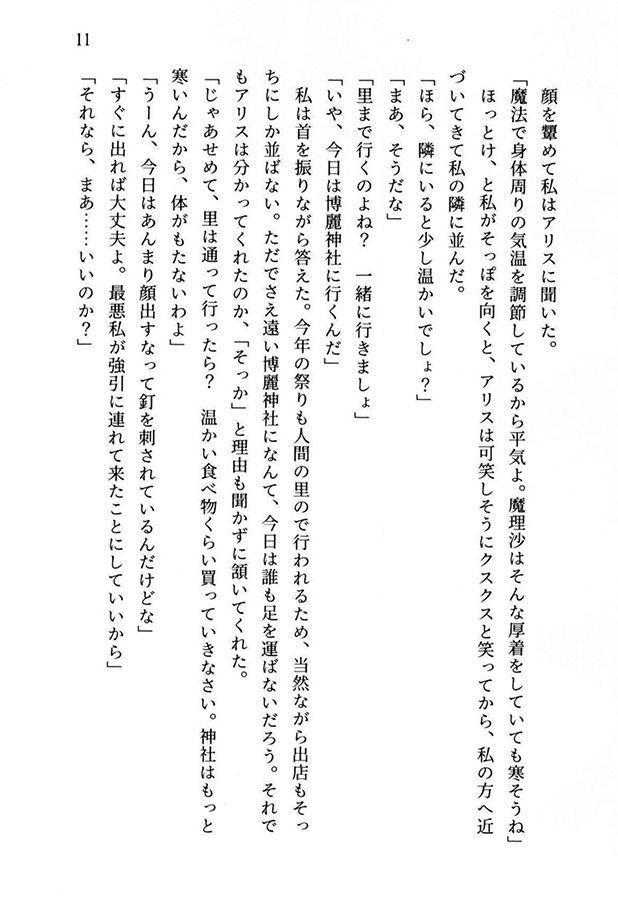 11
顔を顰めて私はアリスに聞いた。
「魔法で身体周りの気温を調節しているから平気よ。魔理沙はそんな厚着をしていても寒そうね」
ほっとけ、と私がそっぽを向くと、アリスは可笑しそうにクスクスと笑ってから、私の方へ近
づいてきて私の隣に並んだ。
「ほら、隣にいると少し温かいでしょ？」
「まあ、そうだな」
「里まで行くのよね？　一緒に行きましょ」
「いや、今日は博麗神社に行くんだ」
私は首を振りながら答えた。今年の祭りも人間の里ので行われるため、当然ながら出店もそっ
ちにしか並ばない。ただでさえ遠い博麗神社になんて、今日は誰も足を運ばないだろう。それで
もアリスは分かってくれたのか、「そっか」と理由も聞かずに頷いてくれた。
「じゃあせめて、里は通って行ったら？　温かい食べ物くらい買っていきなさい。神社はもっと
寒いんだから、体がもたないわよ」
「うーん、今日はあんまり顔出すなって釘を刺されているんだけどな」
「すぐに出れば大丈夫よ。最悪私が強引に連れて来たことにしていいから」
「それなら、まあ……いいのか？」